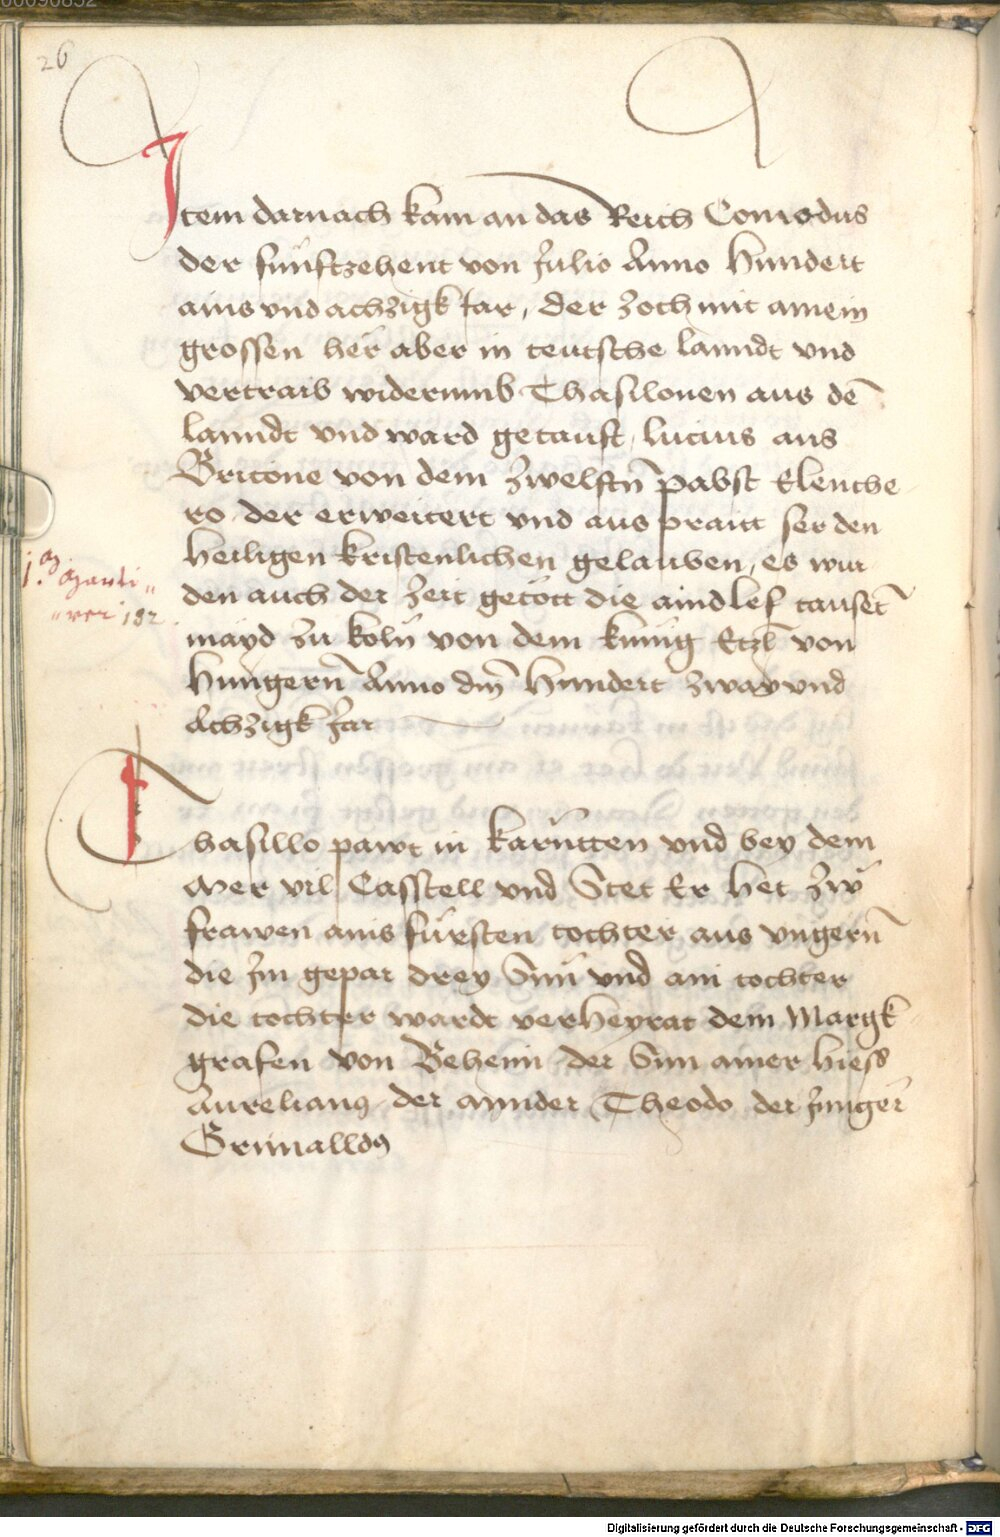 26
Item darnach kam an das Reich Comodus
der funftzehent von Julio Anno Hundert
ains vnd achzigk Jar, der zoch mit ainem
grossen her aber in teutsche lanndt vnd
vertraib widerumb Thasilonen aus dē
lanndt vnd ward getauft, lucius aus
Britone von dem zwelftn̄ pabst Eleuthe
ro der erweitert vnd aus praitt ser den
heiligen kristenlichen gelauben, es wur
den auch der zeit getött die aindlef tausēt
mayd zu koln von dem kunig Etzl̄ von
hungern̄ Anno dm̄ Hundert zway vnd
Achzigk Jar
182
Thasillo pawt in karntten vnd bey dem
mer vil Casstell vnd Stet Er het zw̄
frawen ains fursten tochter aus vngern̄
die Jm gepar drey Sun vnd ain tochter
die tochter wardt verheyrat dem Margk
grafen von Behein der Sun ainer hiess
Aurelianꝰ der annder Theodo der Junger
Grimalldꝰ
Digitalisierung gefördert durch die Deutsche Forschungsgemeinschaft - DFG